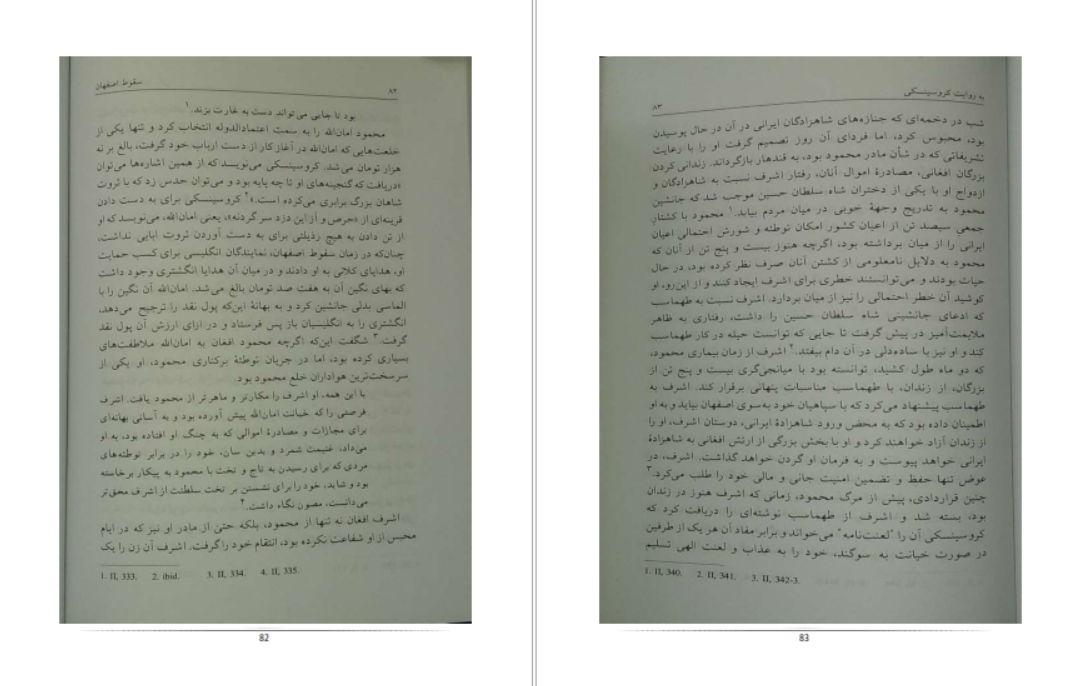 ۸۲
سقوط اصفهان
بود تا جایی می‌تواند دست به غارت بزند.۱
محمود امان‌الله را به سمت اعتمادالدوله انتخاب کرد و تنها یکی از
خلعت‌هایی که امان‌الله در آغاز کار از دست ارباب خود گرفت، بالغ بر نه
هزار تومان می‌شد. کروسینسکی می‌نویسد که از همین اشاره‌ها می‌توان
«دریافت که گنجینه‌های او تا چه پایه بود و می‌توان حدس زد که با ثروت
شاهان بزرگ برابری می‌کرده است.»۲ کروسینسکی برای به دست دادن
قرینه‌ای از «حرص و آز این دزد سر گردنه»، یعنی امان‌الله، می‌نویسد که او
از تن دادن به هیچ رذیلتی برای به دست آوردن ثروت ابایی نداشت،
چنان‌که در زمان سقوط اصفهان، نمایندگان انگلیسی برای کسب حمایت
او، هدایای کلانی به او دادند و در میان آن هدایا انگشتری وجود داشت
که بهای نگین آن به هفت صد تومان بالغ می‌شد. امان‌الله آن نگین را با
الماسی بدلی جانشین کرد و به بهانهٔ این‌که پول نقد را ترجیح می‌دهد،
انگشتری را به انگلیسیان باز پس فرستاد و در ازای ارزش آن پول نقد
گرفت.۳ شگفت این‌که اگرچه محمود افغان به امان‌الله ملاطفت‌های
بسیاری کرده بود، اما در جریان توطئهٔ برکناری محمود، او یکی از
سرسخت‌ترین هواداران خلع محمود بود.
با این همه، او اشرف را مکارتر و ماهرتر از محمود یافت. اشرف
فرصتی را که خیانت امان‌الله پیش آورده بود و به آسانی بهانه‌ای
برای مجازات و مصادرهٔ اموالی که به چنگ او افتاده بود، به او
می‌داد، غنیمت شمرد و بدین سان، خود را در برابر توطئه‌های
مردی که برای رسیدن به تاج و تخت با محمود به پیکار برخاسته
بود و شاید، خود را برای نشستن بر تخت سلطنت از اشرف محق‌تر
می‌دانست، مصون نگاه داشت.۴
اشرف افغان نه تنها از محمود، بلکه حتیٰ از مادر او نیز که در ایام
محبس از او شفاعت نکرده بود، انتقام خود را گرفت. اشرف آن زن را یک
1. II, 333. 2. ibid. 3. II, 334. 4. II, 335.
82
به روایت کروسینسکی
۸۳
شب در دخمه‌ای که جنازه‌های شاهزادگان ایرانی در آن در حال پوسیدن
بود، محبوس کرد، اما فردای آن روز تصمیم گرفت او را با رعایت
تشریفاتی که در شأن مادر محمود بود، به قندهار بازگرداند. زندانی کردن
بزرگان افغانی، مصادرهٔ اموال آنان، رفتار اشرف نسبت به شاهزادگان و
ازدواج او با یکی از دختران شاه سلطان حسین موجب شد که جانشین
محمود به تدریج وجههٔ خوبی در میان مردم بیابد.۱ محمود با کشتار
جمعی سیصد تن از اعیان کشور امکان توطئه و شورش احتمالی اعیان
ایرانی را از میان برداشته بود، اگرچه هنوز بیست و پنج تن از آنان که
محمود به دلایل نامعلومی از کشتن آنان صرف نظر کرده بود، در حال
حیات بودند و می‌توانستند خطری برای اشرف ایجاد کنند و از این‌رو، او
کوشید آن خطر احتمالی را نیز از میان بردارد. اشرف نسبت به طهماسب
که ادعای جانشینی شاه سلطان حسین را داشت، رفتاری به ظاهر
ملایمت‌آمیز در پیش گرفت تا جایی که توانست حیله در کار طهماسب
کند و او نیز با ساده‌دلی در آن دام بیفتد.۲ اشرف از زمان بیماری محمود،
که دو ماه طول کشید، توانسته بود با میانجی‌گری بیست و پنج تن از
بزرگان، از زندان، با طهماسب مناسبات پنهانی برقرار کند. اشرف به
طهماسب پیشنهاد می‌کرد که با سپاهیان خود به‌سوی اصفهان بیاید و به او
اطمینان داده بود که به محض ورود شاهزادهٔ ایرانی، دوستان اشرف، او را
از زندان آزاد خواهند کرد و او با بخش بزرگی از ارتش افغانی به شاهزادهٔ
ایرانی خواهد پیوست و به فرمان او گردن خواهد گذاشت. اشرف، در
عوض تنها حفظ و تضمین امنیت جانی و مالی خود را طلب می‌کرد.۳
چنین قراردادی، پیش از مرگ محمود، زمانی که اشرف هنوز در زندان
بود، بسته شد و اشرف از طهماسب نوشته‌ای را دریافت کرد که
کروسینسکی آن را "لعنت‌نامه" می‌خواند و برابر مفاد آن هر یک از طرفین
در صورت خیانت به سوگند، خود را به عذاب و لعنت الهی تسلیم
1. II, 340. 2. II, 341. 3. II, 342-3.
83